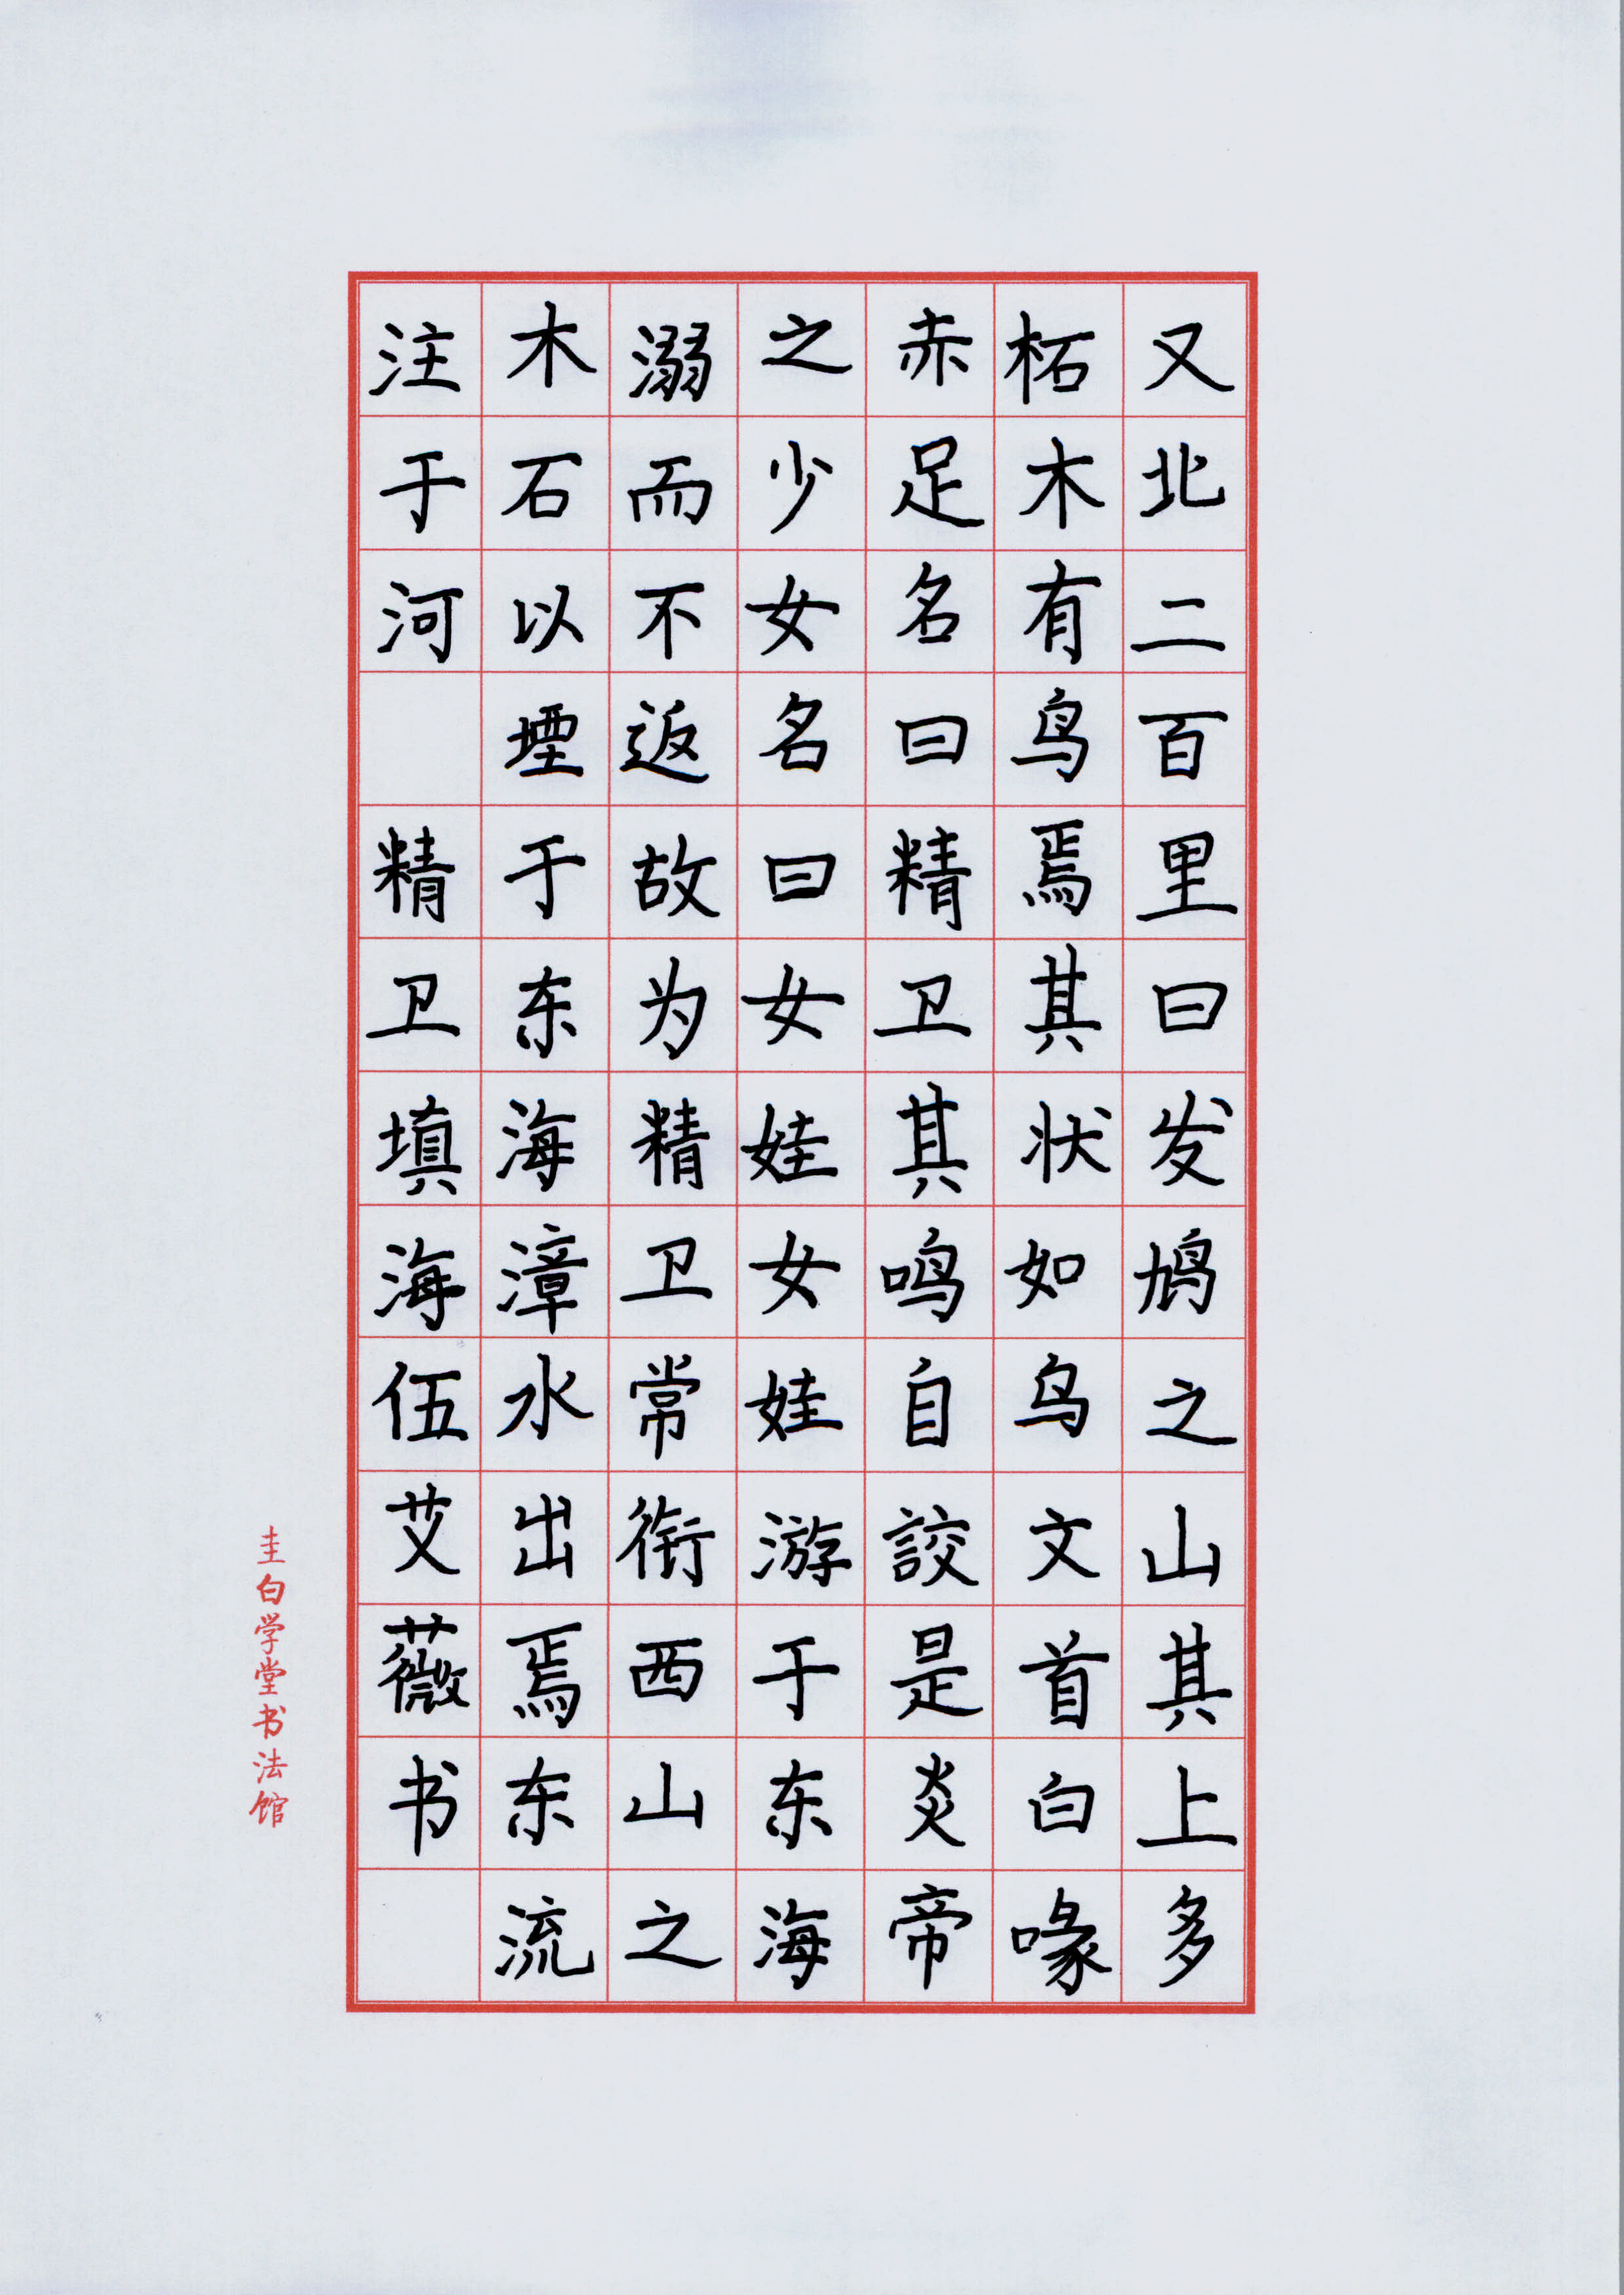 又北二百里曰发鸠之山其上多
柘木有鸟焉其状如乌文首白喙
赤足名曰精卫其鸣自詨是炎帝
之少女名曰女娃女娃游于东海
溺而不返故为精卫常衔西山之
木石以堙于东海漳水出焉东流
注于河 精卫填海伍艾薇书
圭白学堂书法馆